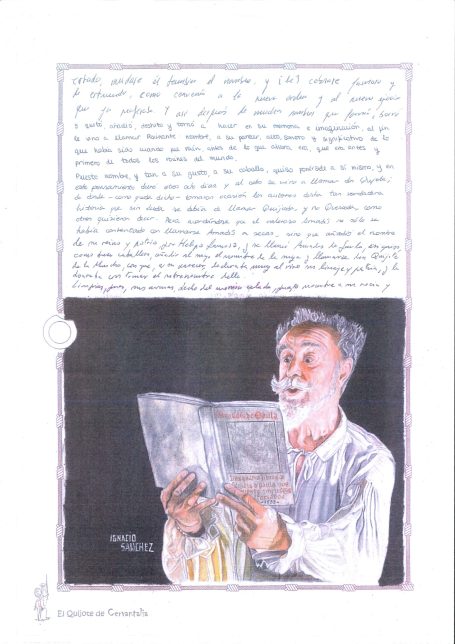 estado, mudase él también el nombre, y
de estruendo, como convenía a la nueva orden y al nuevo
que ya profesaba. Y así después de muchos nombres que formó, borró
y quitó, añadió, deshizo y tornó a hacer en su memoria e imaginación, al fin
le vino a llamar Rocinante, nombre, a su parecer, alto, sonoro y significativo de lo
que había sido cuando fue rocín, antes de lo que ahora era, que era antes y
primero de todos los rocines del mundo.
Puesto nombre, y tan a su gusto, a su caballo, quiso ponérsele a sí mismo, y en
este pensamiento duró otros ocho días y al cabo se vino a llamar don Quijote;
de donde - como queda dicho - tomaron ocasión los autores desta tan verdadera
historia que sin duda se debía de llamar Quijada, y no Quesada, como
otros quisieron decir. Pero acordándose que el valeroso Amadís no sólo se
había contentado con llamarse Amadís a secas, sino que añadió el nombre
de su reino y patria por famosa, y se llamó Amadís de Gaula,
como buen caballero, añadir al suyo el nombre de la suya y llamarse don Quijote
de la Mancha, con que, a su parecer, declaraba muy al vivo su linaje y patria, y la
honraba con tomar el sobrenombre della
Limpias, pues, sus armas, hecho del morrión celada, puesto nombre a su rocín y
IGNACIO
SANCHEZ
El Quijote de Cervantalia